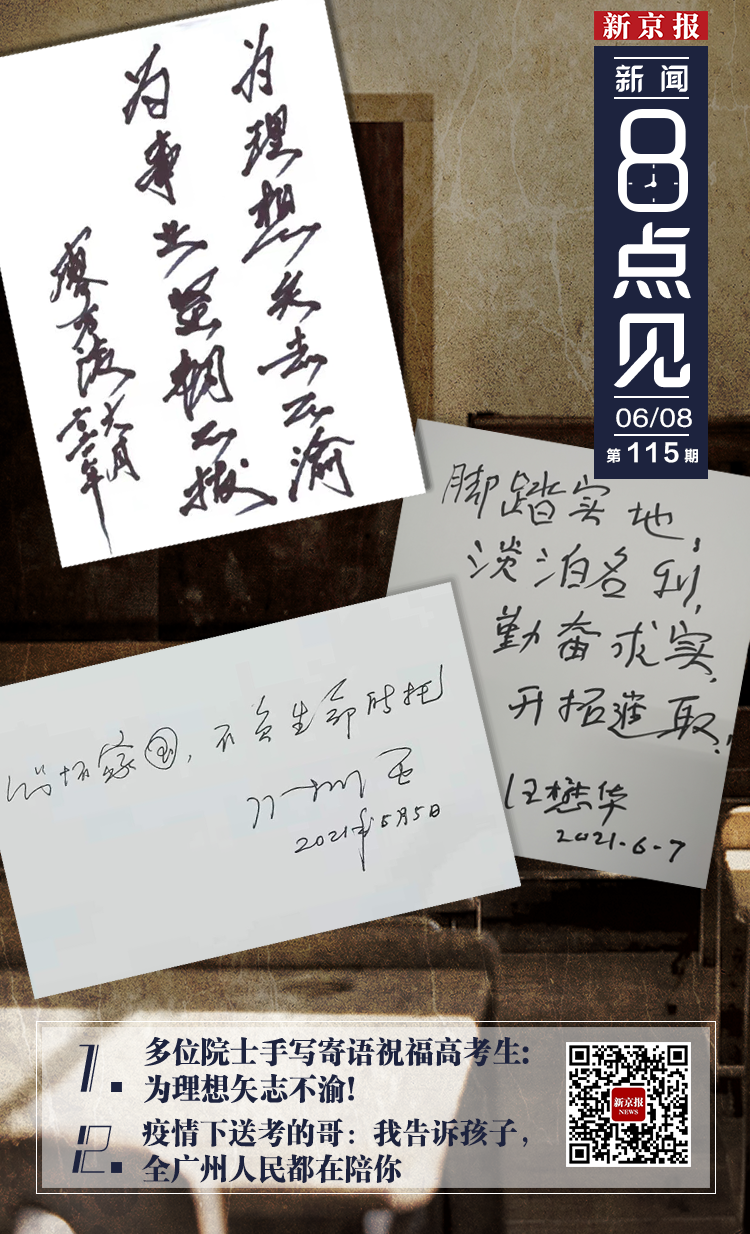 新京报
新闻
8点见
06/08
第115期
为理想矢志不渝
为事业坚韧不拔
廖万清
二〇二一年六月
脚踏实地，
淡泊名利，
勤奋求实，
开拓进取！
汪懋华
2021-6-7
满怀家国，不负生命所托
2021年5月5日
1.
多位院士手写寄语祝福高考生：
为理想矢志不渝！
2.
疫情下送考的哥：我告诉孩子，
全广州人民都在陪你
新京报
NEWS